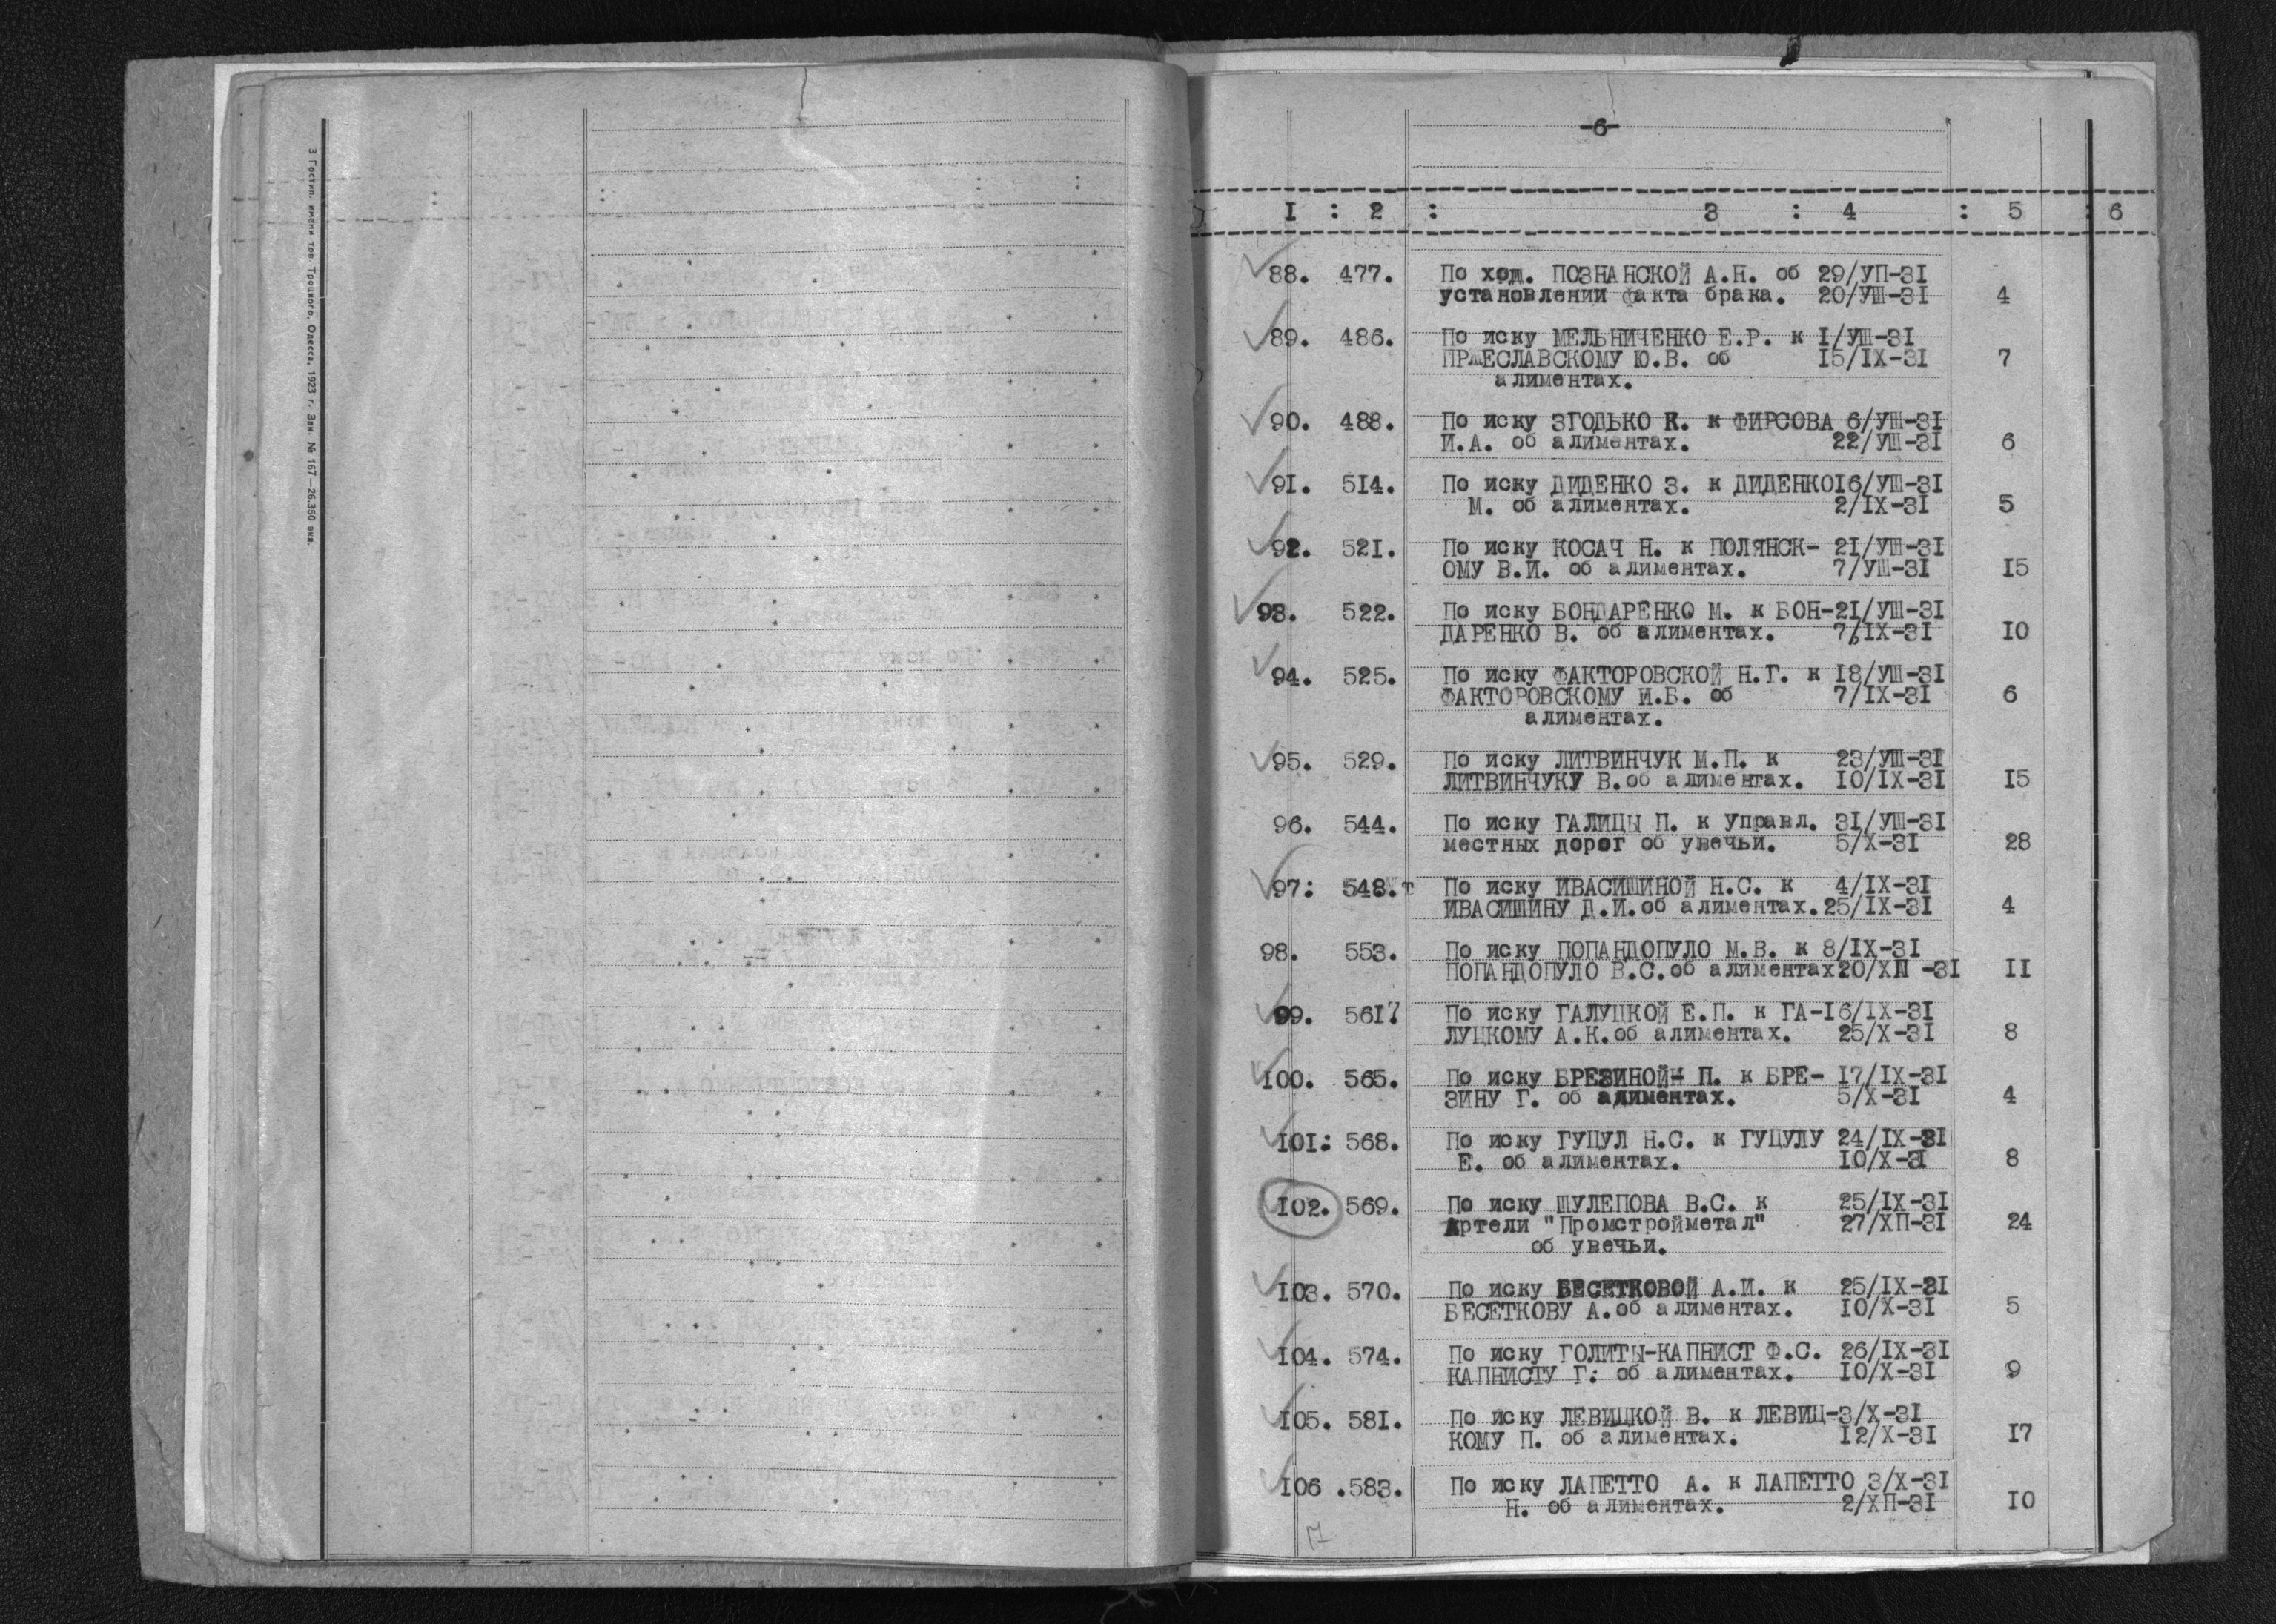 3 Гостип. имени тов. Троцкого. Одесса. 1923 г. Зак. № 167—26.350 экз.
-6-
I : 2 : 3 : 4 : 5 : 6
88. 477. По ход. ПОЗНАНСКОЙ А.Н. об 29/УП-31
установлении факта брака. 20/УШ-31 4
89. 486. По иску МЕЛЬНИЧЕНКО Е.Р. к I/УШ-31
ПРЖЕСЛАВСКОМУ Ю.В. об I5/IX-31 7
алиментах.
90. 488. По иску ЗГОДЬКО К. к ФИРСОВА 6/УШ-31
И.А. об алиментах. 22/УШ-31 6
91. 514. По иску ДИДЕНКО З. к ДИДЕНКО I6/УШ-31
М. об алиментах. 2/IX-31 5
92. 521. По иску КОСАЧ Н. к ПОЛЯНСК- 2I/УШ-31
ОМУ В.И. об алиментах. 7/УШ-31 I5
93. 522. По иску БОНДАРЕНКО М. к БОН-2I/УШ-31
ДАРЕНКО В. об алиментах. 7/IX-31 IO
94. 525. По иску ФАКТОРОВСКОЙ Н.Г. к I8/УШ-31
ФАКТОРОВСКОМУ И.Б. об 7/IX-31 6
алиментах.
95. 529. По иску ЛИТВИНЧУК М.П. к 23/УШ-31
ЛИТВИНЧУКУ В.об алиментах. IO/IX-31 I5
96. 544. По иску ГАЛИЦЫ П. к Управл. 3I/УШ-31
местных дорог об увечьи. 5/X-31 28
97: 548.т По иску ИВАСИШИНОЙ Н.С. к 4/IX-31
ИВАСИШИНУ Д.И.об алиментах. 25/IX-31 4
98. 553. По иску ПОПАНДОПУЛО М.В. к 8/IX-31
ПОПАНДОПУЛО В.С.об алиментах20/ХП -31 II
99. 56I7 По иску ГАЛУЦКОЙ Е.П. к ГА-I6/IX-31
ЛУЦКОМУ А.К.об алиментах. 25/X-31 8
IOO. 565. По иску БРЕЗИНОЙ П. к БРЕ- I7/IX-31
ЗИНУ Г. об алиментах. 5/X-31 4
IOI: 568. По иску ГУЦУЛ Н.С. к ГУЦУЛУ 24/IX-31
Е. об алиментах. IO/X-31 8
IO2. 569. По иску ШУЛЕПОВА В.С. к 25/IX-31
Артели "Промстройметал" 27/ХП-31 24
об увечьи.
IO3. 570. По иску БЕСЕТКОВОЙ А.И. к 25/IX-31
БЕСЕТКОВУ А.об алиментах. IO/X-31 5
IO4. 574. По иску ГОЛИТЫ-КАПНИСТ Ф.С. 26/IX-31
КАПНИСТУ Г: об алиментах. IO/X-31 9
IO5. 581. По иску ЛЕВИЦКОЙ В. к ЛЕВИЦ-3/X-31
КОМУ П. об алиментах. I2/X-31 I7
IO6 .583. По иску ЛАПЕТТО А. к ЛАПЕТТО 3/X-31
Н. об алиментах. 2/ХП-31 IO
17